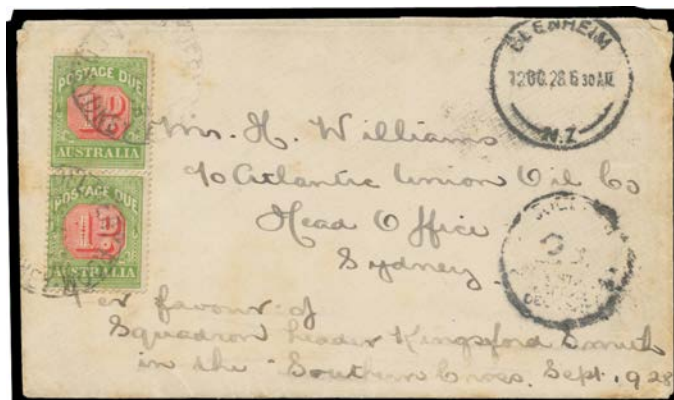 POSTAGE DUE
1D
AUSTRALIA
POSTAGE DUE
1D
AUSTRALIA
BLENHEIM
12 OC. 28. 6 30 AM.
N.Z
Mr. H. Williams
c/o Atlantic Union Oil Co
Head Office
Sydney.
Per favour of
Squadron Leader Kingsford Smith
in the "Southern Cross. Sept. 1928